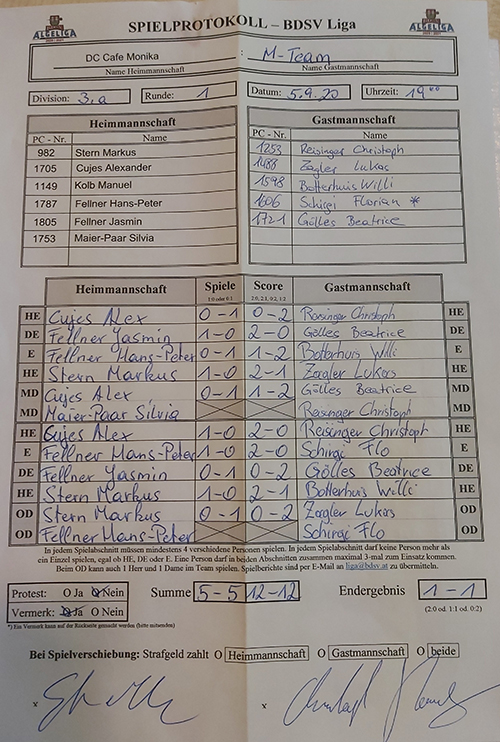 SPIELPROTOKOLL – BDSV Liga
ALGELIGA ALGELIGA
DC Cafe Monika : M-Team
Name Heimmannschaft Name Gastmannschaft
Division: 3,a Runde: 1 Datum: 5.9.20 Uhrzeit: 19⁰⁰
Heimmannschaft Gastmannschaft
PC - Nr. Name PC - Nr. Name
982 Stern Markus 1253 Reisinger Christoph
1705 Cujes Alexander 1488 Zagler Lukas
1149 Kolb Manuel 1598 Botterhuis Willi
1787 Fellner Hans-Peter 1606 Schirgi Florian *
1805 Fellner Jasmin 1721 Gölles Beatrice
1753 Maier-Paar Silvia
Heimmannschaft Spiele Score Gastmannschaft
1:0 oder 0:1 2:0, 2:1, 0:2, 1:2
HE Cujes Alex 0-1 0-2 Reisinger Christoph HE
DE Fellner Yasmin 1-0 2-0 Gölles Beatrice DE
E Fellner Hans-Peter 0-1 1-2 Botterhuis Willi E
HE Stern Markus 1-0 2-1 Zagler Lukas HE
MD Cujes Alex 0-1 1-2 Gölles Beatrice MD
MD Maier-Paar Silvia Reisinger Christoph MD
HE Cujes Alex 1-0 2-0 Reisinger Christoph HE
E Fellner Hans-Peter 1-0 2-0 Schirgi Flo E
DE Fellner Yasmin 0-1 0-2 Gölles Beatrice DE
HE Stern Markus 1-0 2-1 Botterhuis Willi HE
OD Stern Markus 0-1 0-2 Zagler Lukas OD
OD Fellner Hans-Peter Schirgi Flo OD
In jedem Spielabschnitt müssen mindestens 4 verschiedene Personen spielen. In jedem Spielabschnitt darf keine Person mehr als
ein Einzel spielen, egal ob HE, DE oder E. Eine Person darf in beiden Abschnitten zusammen maximal 3-mal zum Einsatz kommen.
Beim OD kann auch 1 Herr und 1 Dame im Team spielen. Spielberichte sind per E-Mail an liga@bdsv.at zu übermitteln.
Protest: O Ja O Nein Summe 5-5 12-12 Endergebnis 1-1
Vermerk: O Ja O Nein (2:0 od. 1:1 od. 0:2)
*) Ein Vermerk kann auf der Rückseite gemacht werden (bitte mitsenden)
Bei Spielverschiebung: Strafgeld zahlt O Heimmannschaft O Gastmannschaft O beide
x x